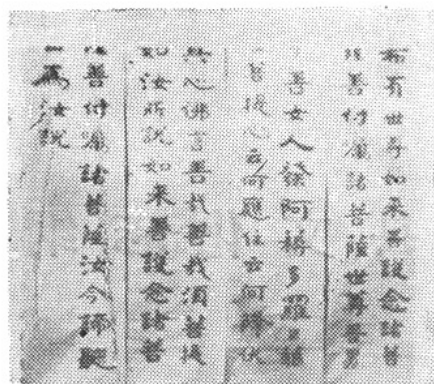 希有世尊如来善護念諸菩
薩善付囑諸菩薩世尊善男
善女人發阿耨多羅三藐
三菩提心云何應住云何降伏
其心佛言善哉善哉湏菩提
如汝所說如来善護念諸菩
薩善付囑諸菩薩汝今諦聽
為汝說